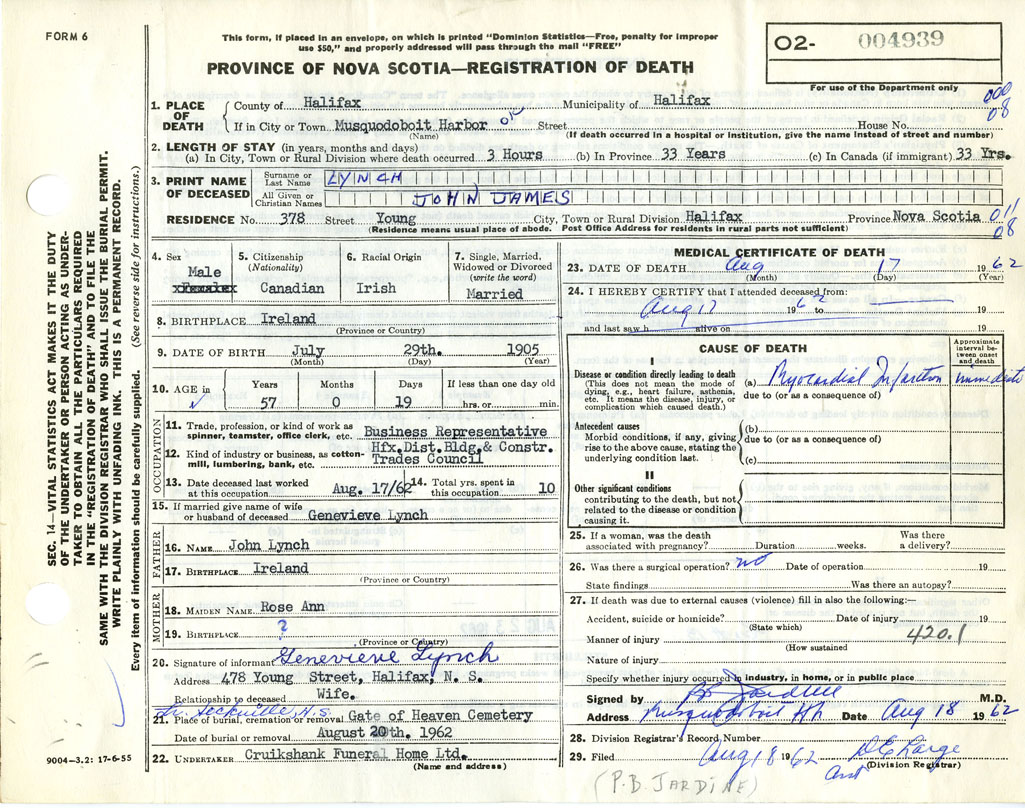 FORM 6
This form, if placed in an envelope, on which is printed "Dominion Statistics—Free, penalty for improper
use $50," and properly addressed will pass through the mail "FREE"
PROVINCE OF NOVA SCOTIA—REGISTRATION OF DEATH
O2- 004939
For use of the Department only
000
08
1. PLACE OF DEATH
County of Halifax Municipality of Halifax
If in City or Town Musquodoboit Harbor Street House No.
(Name) (If death occurred in a hospital or institution, give the name instead of street and number)
2. LENGTH OF STAY (in years, months and days)
(a) In City, Town or Rural Division where death occurred 3 Hours (b) In Province 33 Years (c) In Canada (if immigrant) 33 Yrs.
3. PRINT NAME OF DECEASED
Surname or Last Name LYNCH
All Given or Christian Names JOHN JAMES
RESIDENCE No. 378 Street Young City, Town or Rural Division Halifax Province Nova Scotia 011
(Residence means usual place of abode. Post Office Address for residents in rural parts not sufficient) 08
4. Sex Male
5. Citizenship (Nationality) Canadian
6. Racial Origin Irish
7. Single, Married, Widowed or Divorced (write the word) Married
8. BIRTHPLACE Ireland
(Province or Country)
9. DATE OF BIRTH July 29th. 1905
(Month) (Day) (Year)
10. AGE in Years Months Days If less than one day old
57 0 19 hrs. or min.
OCCUPATION
11. Trade, profession, or kind of work as spinner, teamster, office clerk, etc. Business Representative
12. Kind of industry or business, as cotton-mill, lumbering, bank, etc. Hfx.Dist.Bldg.& Constr. Trades Council
13. Date deceased last worked at this occupation Aug. 17/62
14. Total yrs. spent in this occupation 10
15. If married give name of wife or husband of deceased Genevieve Lynch
FATHER
16. NAME John Lynch
17. BIRTHPLACE Ireland
(Province or Country)
MOTHER
18. MAIDEN NAME Rose Ann
19. BIRTHPLACE ?
(Province or Country)
20. Signature of informant Genevieve Lynch
Address 478 Young Street, Halifax, N. S.
Relationship to deceased Wife.
21. Place of burial, cremation or removal Gate of Heaven Cemetery
Date of burial or removal August 20th. 1962
22. UNDERTAKER Cruikshank Funeral Home Ltd.
(Name and address)
MEDICAL CERTIFICATE OF DEATH
23. DATE OF DEATH Aug 17 1962
(Month) (Day) (Year)
24. I HEREBY CERTIFY that I attended deceased from:
Aug 17 1962 to 19
and last saw h alive on 19
CAUSE OF DEATH
Approximate interval between onset and death
I
Disease or condition directly leading to death
(This does not mean the mode of dying, e.g., heart failure, asthenia, etc. It means the disease, injury, or complication which caused death.)
(a) Myocardial Infarction immediate
due to (or as a consequence of)
Antecedent causes
Morbid conditions, if any, giving rise to the above cause, stating the underlying condition last.
(b)
due to (or as a consequence of)
(c)
II
Other significant conditions
contributing to the death, but not related to the disease or condition causing it.
25. If a woman, was the death associated with pregnancy? Duration weeks. Was there a delivery?
26. Was there a surgical operation? no Date of operation 19
State findings Was there an autopsy?
27. If death was due to external causes (violence) fill in also the following:—
Accident, suicide or homicide? Date of injury 19
(State which)
Manner of injury 420.1
(How sustained
Nature of injury
Specify whether injury occurred in industry, in home, or in public place
Signed by P B Jardine M.D.
Address Musquodoboit Hb Date Aug 18 1962
28. Division Registrar's Record Number
29. Filed Aug 18 1962 D E Large
(Division Registrar)
(P.B JARDINE)
SEC. 14—VITAL STATISTICS ACT MAKES IT THE DUTY
OF THE UNDERTAKER OR PERSON ACTING AS UNDER-
TAKER TO OBTAIN ALL THE PARTICULARS REQUIRED
IN THE "REGISTRATION OF DEATH" AND TO FILE THE
SAME WITH THE DIVISION REGISTRAR WHO SHALL ISSUE THE BURIAL PERMIT.
WRITE PLAINLY WITH UNFADING INK. THIS IS A PERMANENT RECORD.
Every item of information should be carefully supplied. (See reverse side for instructions.)
9004—3.2: 17-6-55